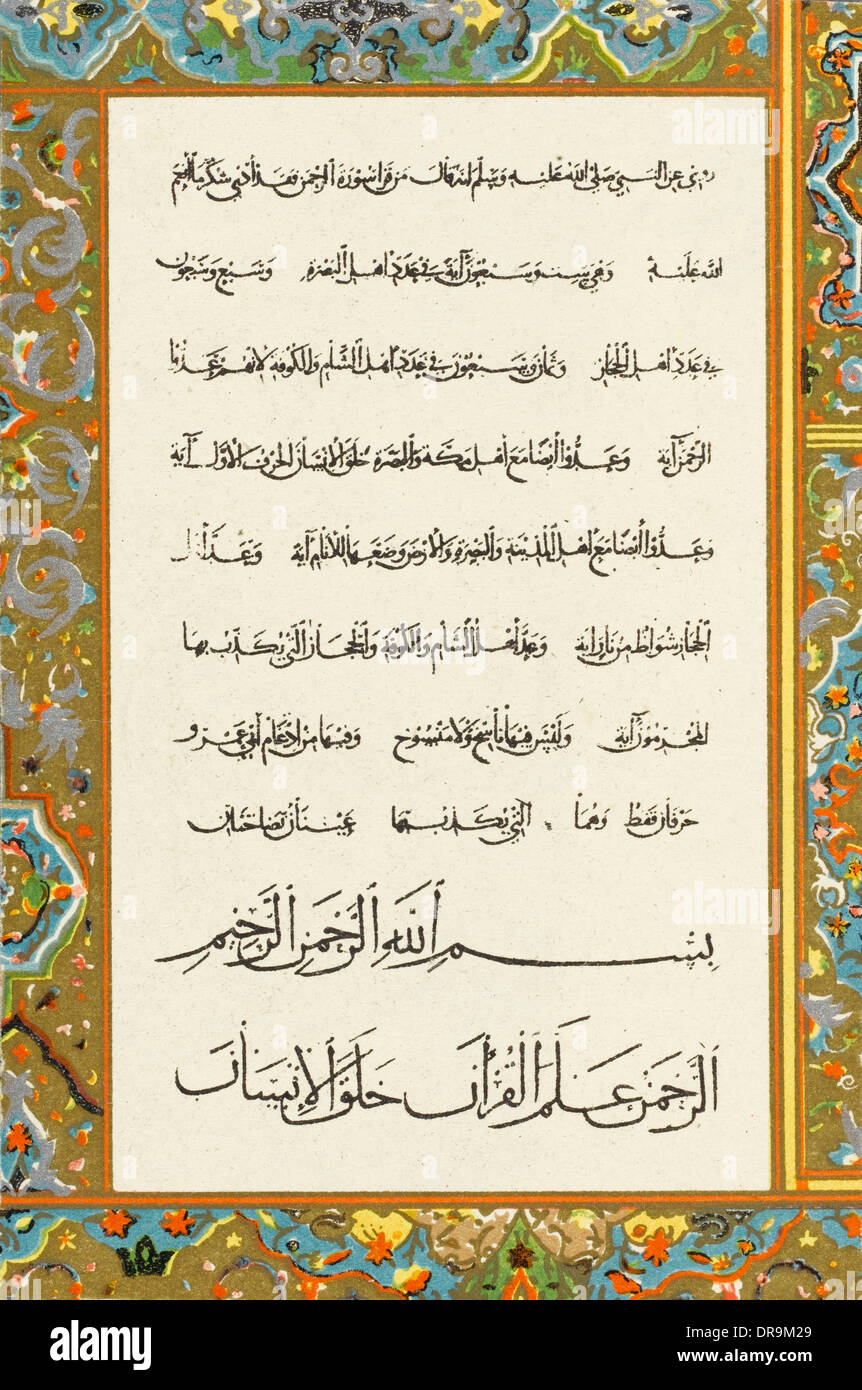 روي عن النبي صلى الله عليه وسلم انه قال من قرأ سورة الرحمن فقد أدى شكر ما أنعم
الله عليه وهي ست وسبعون آية في عدد أهل البصرة وسبع وسبعون
في عدد أهل الحجاز وثمان وسبعون في عدد أهل الشام والكوفة لانهم عدوا
الرحمن آية وعدوا أيضا مع أهل مكة والبصرة خلق الإنسان الحرف الأول آية
وعدوا أيضا مع أهل المدينة والبصرة والارض وضعها للانام آية وعد أهل
الحجاز شواظ من نار آية وعد أهل الشام والكوفة والحجاز التي يكذب بها
المجرمون آية وليس فيها ناسخ ولا منسوخ وفيها من إدغام أبي عمرو
حرفان فقط وهما التي يكذب بها عينان نضاختان
بِسْمِ ٱللَّهِ ٱلرَّحْمَنِ ٱلرَّحِيمِ
ٱلرَّحْمَنُ عَلَّمَ ٱلْقُرْآنَ خَلَقَ ٱلْإِنْسَانَ
a alamy
alamy
Image ID: DR9M29
www.alamy.com